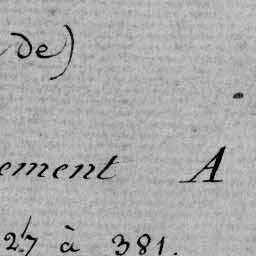 de)
ement A
217 à 381.